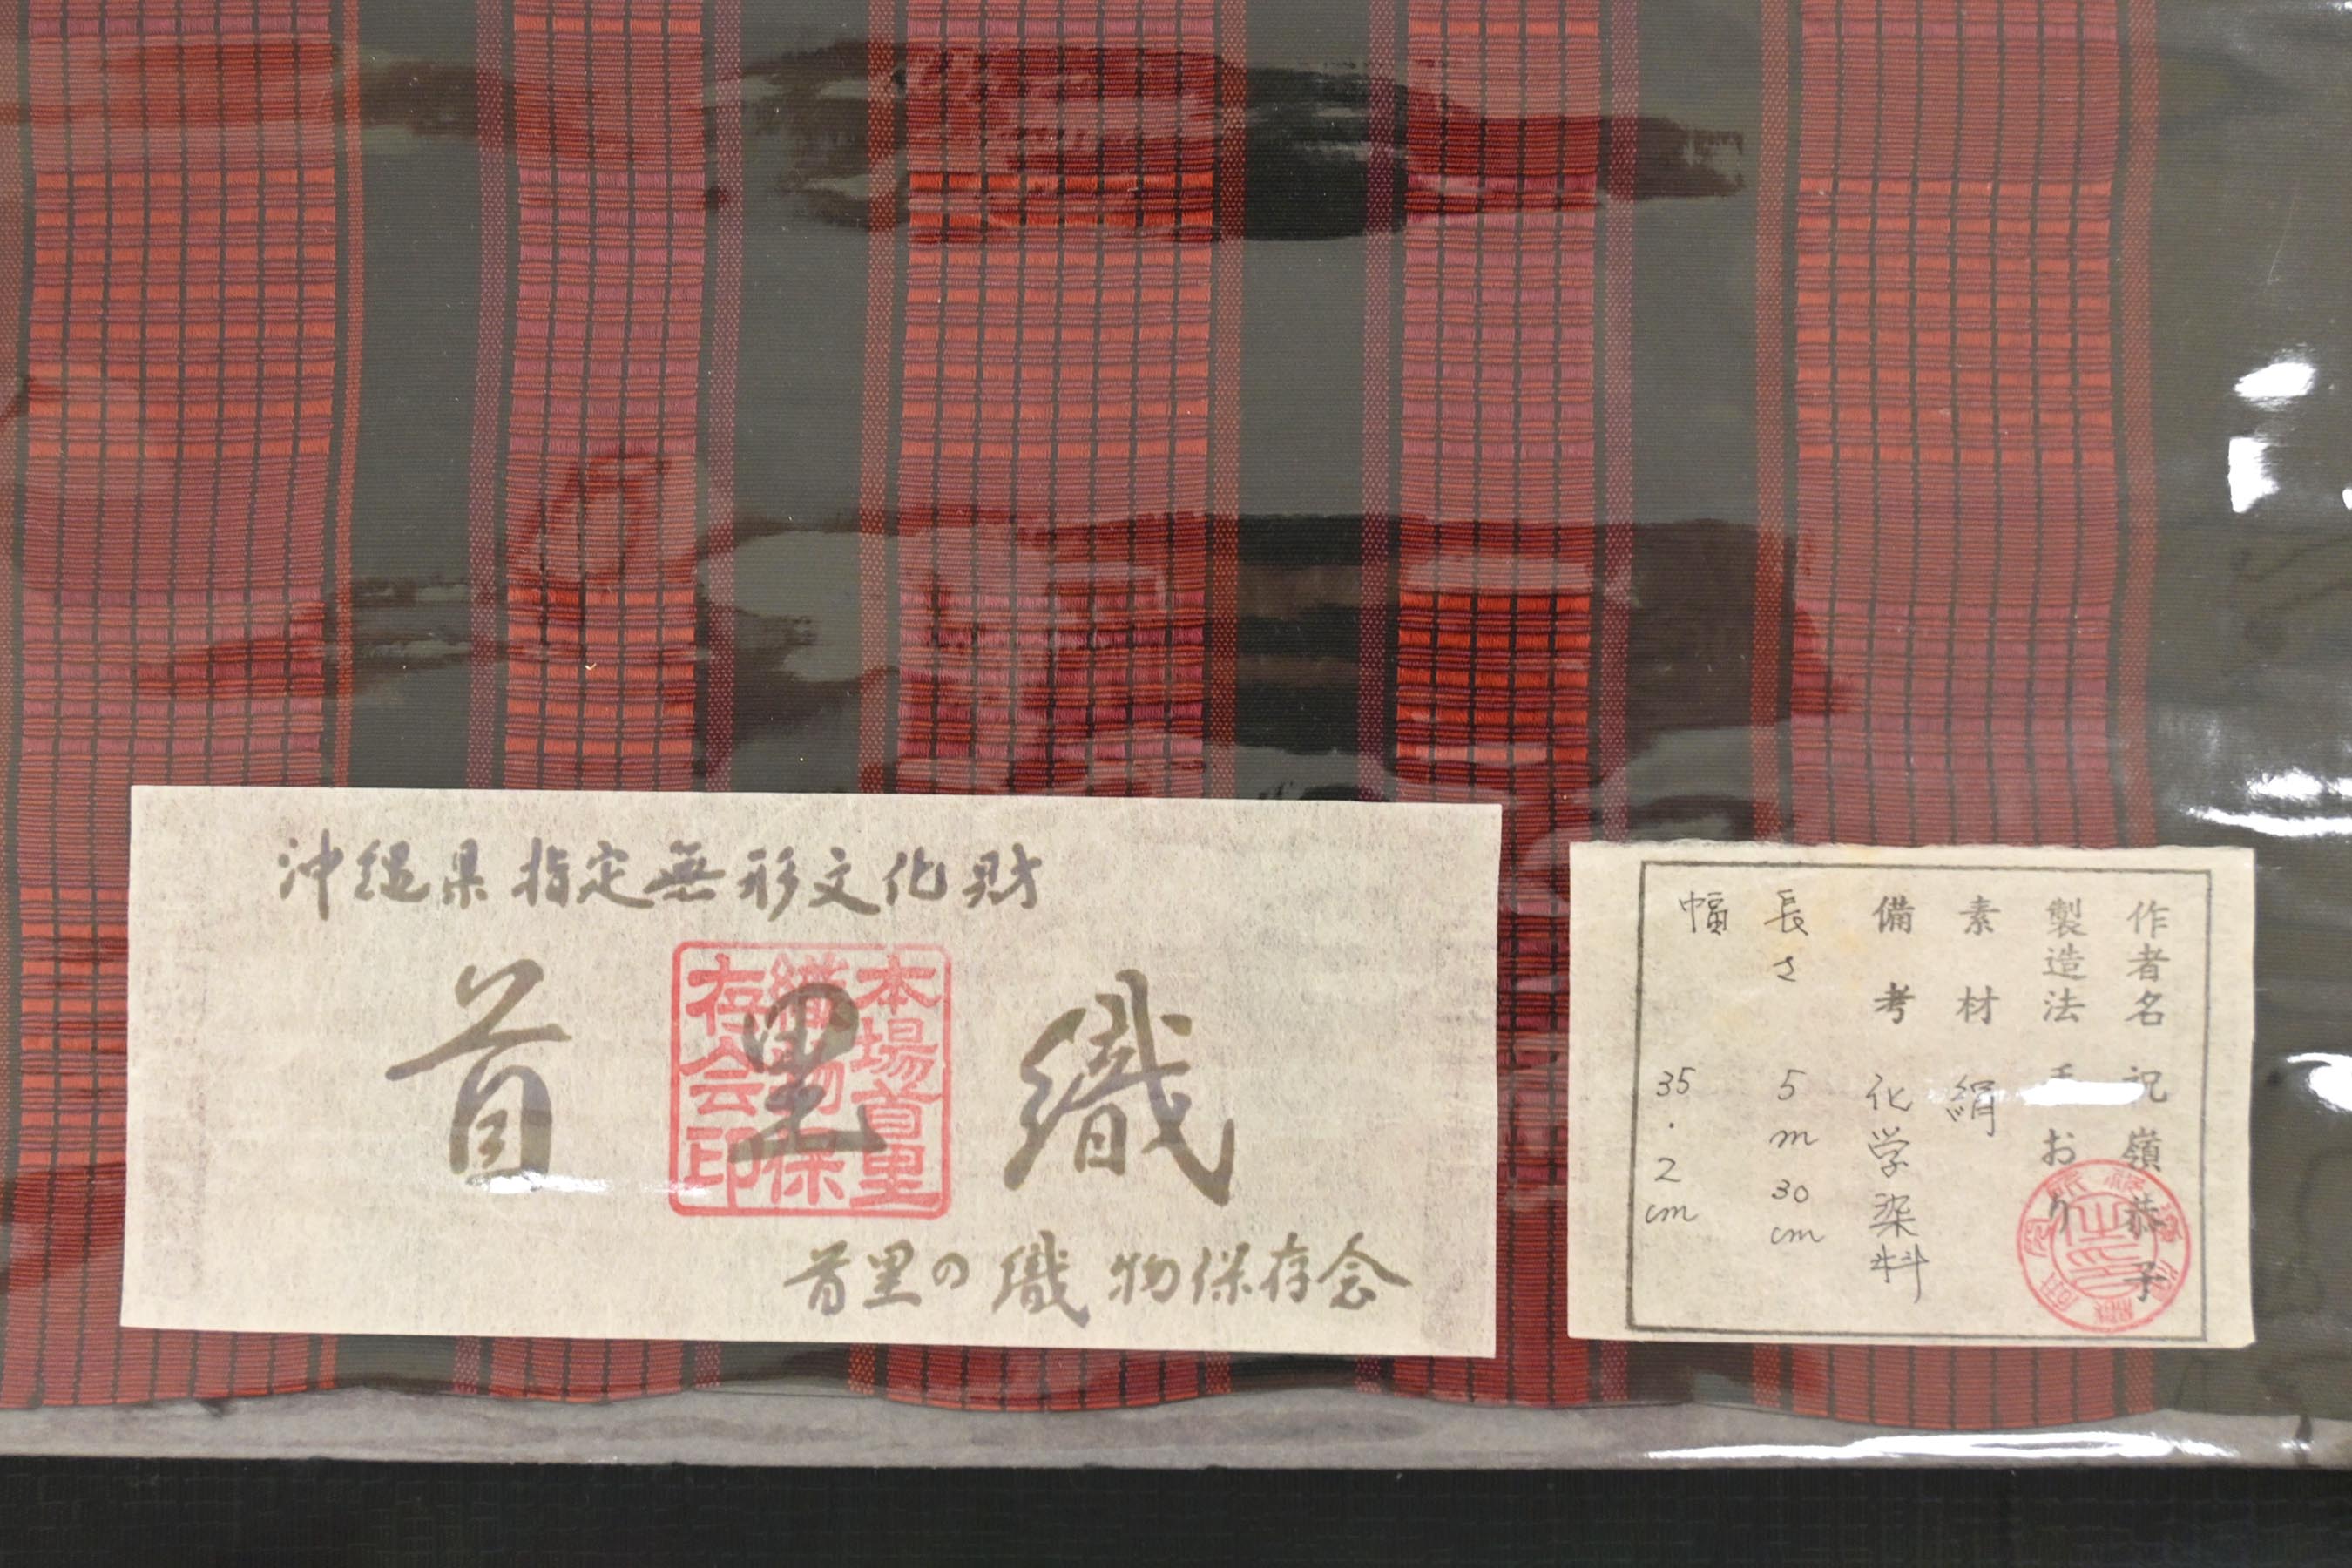 沖縄県指定無形文化財
首里織
本場首里
織物保
存会印
首里の織物保存会
作者名 祝嶺恭子
製造法 手おり
素材 絹
備考 化学染料
長さ 5m30cm
幅 35.2cm